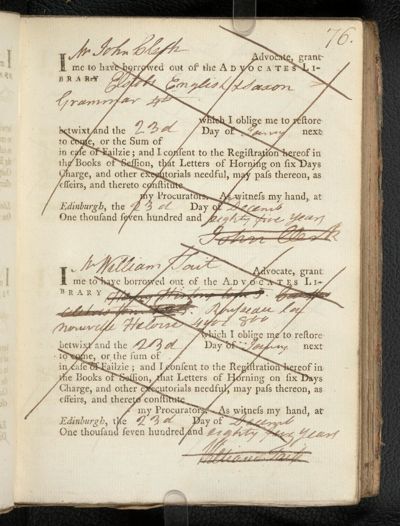 76.
I Mr John Clerk Advocate, grant
me to have borrowed out of the ADVOCATES LI-
BRARY English & Saxon
Grammar 4to
which I oblige me to reſtore
betwixt and the 23d Day of Janry next
to come, or the Sum of
in caſe of Failzie; and I conſent to the Regiſtration hereof in
the Books of Seſſion, that Letters of Horning on ſix Days
Charge, and other executorials needful, may paſs thereon, as
effeirs, and thereto conſtitute
my Procurators. As witneſs my hand, at
Edinburgh, the 23d Day of Decemb
One thouſand ſeven hundred and eighty five years
John Clerk
I Mr William Tait Advocate, grant
me to have borrowed out of the ADVOCATES LI-
BRARY
Rousseau La
nouvelle Heloise 8vo
which I oblige me to reſtore
betwixt and the 23d Day of Janry next
to come, or the ſum of
in caſe of Failzie; and I conſent to the Regiſtration hereof in
the Books of Seſſion, that Letters of Horning on ſix Days
Charge, and other executorials needful, may paſs thereon, as
effeirs, and thereto conſtitute
my Procurators. As witneſs my hand, at
Edinburgh, the 23d Day of Decemb
One thouſand ſeven hundred and eighty five years
William Tait